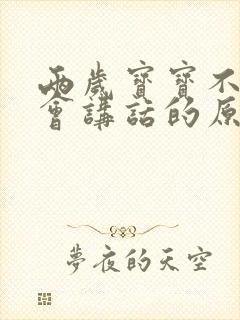 兩歲寶寶不
會講話的原
夢夜的天空